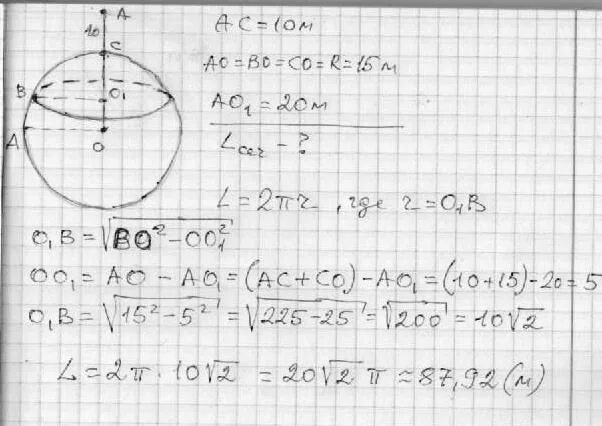 A
10
C
B
O₁
A
O
AC = 10м
AO = BO = CO = R = 15м
AO₁ = 20м
Lсеч - ?
L = 2πr, где r = O₁B
O₁B = √(BO² - OO₁²)
OO₁ = AO - AO₁ = (AC + CO) - AO₁ = (10 + 15) - 20 = 5
O₁B = √(15² - 5²) = √(225 - 25) = √200 = 10√2
L = 2π · 10√2 = 20√2 π ≈ 87,92 (м)